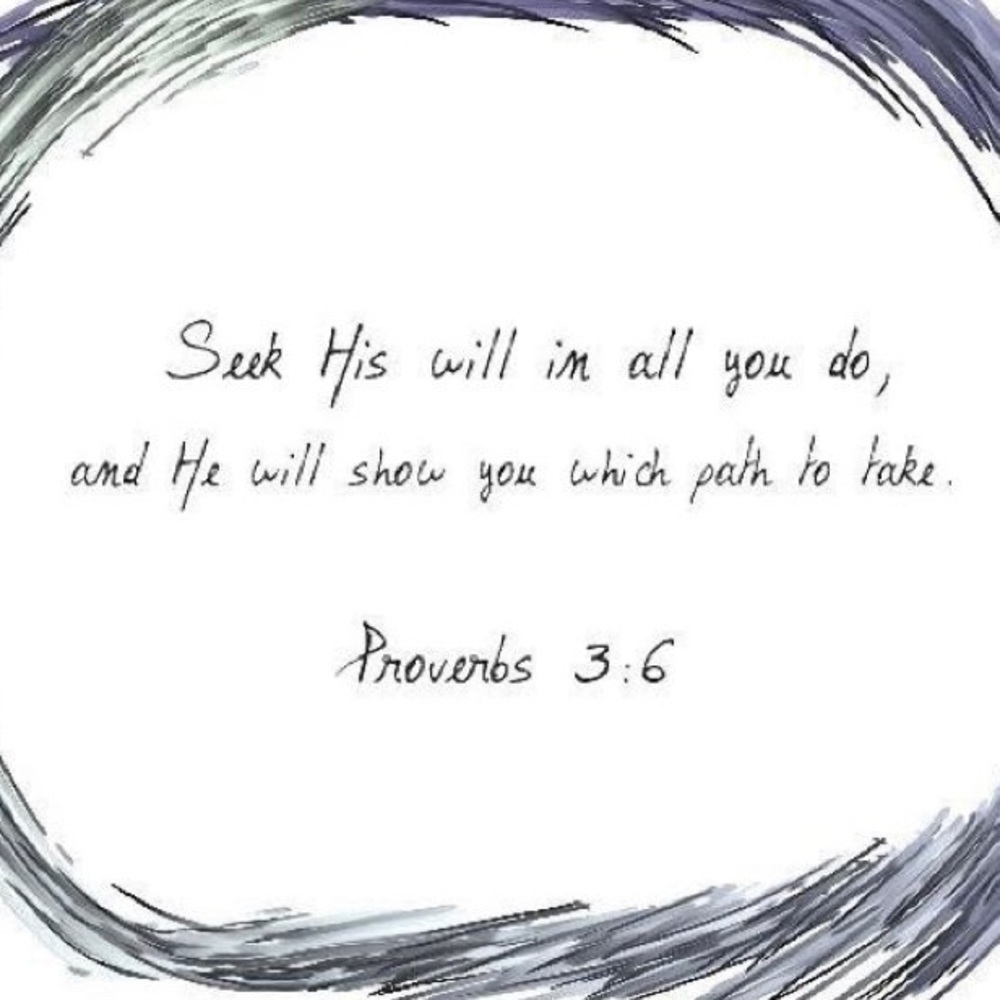 Seek His will in all you do,
and He will show you which path to take.
Proverbs 3:6